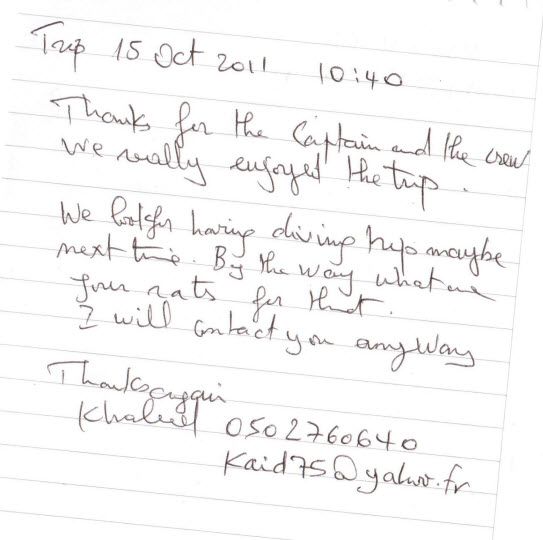 Trip 15 Oct 2011 10:40
Thanks for the Captain and the crew
We really enjoyed the trip.
We look for having diving trip maybe
next time. By the way what are
your rats for that.
I will contact you anyway
Thanks again
Khaleel 0502760640
Kaid75@yahoo.fr